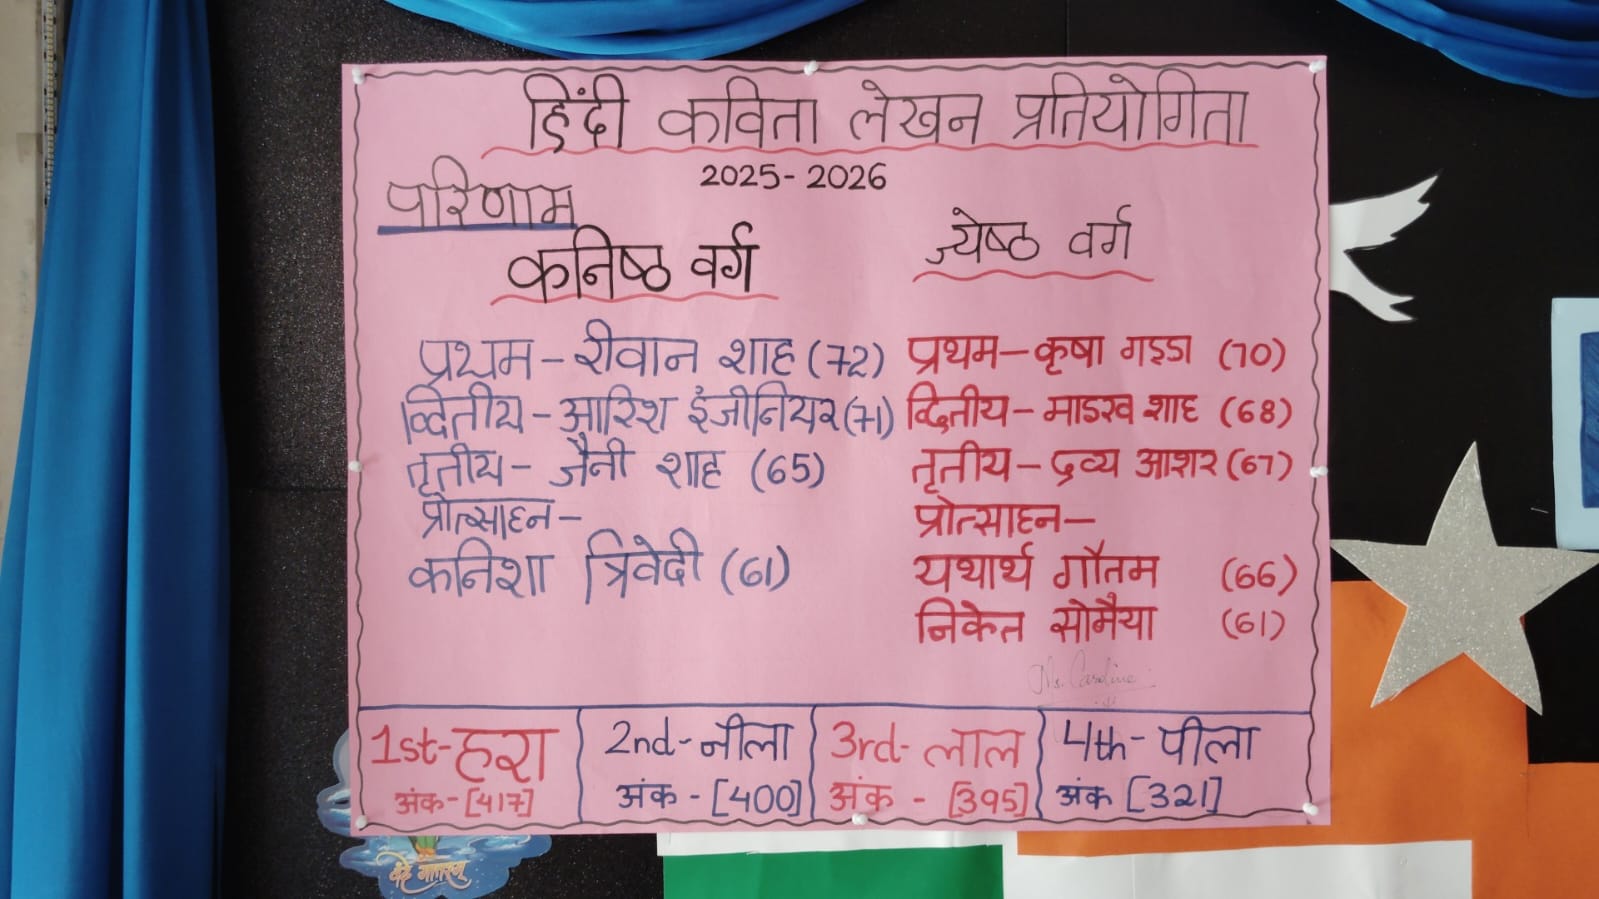 हिंदी कविता लेखन प्रतियोगिता
2025-2026
परिणाम
कनिष्ठ वर्ग
प्रथम - रीवान शाह (72)
द्वितीय - आरिश इंजीनियर (71)
तृतीय - जैनी शाह (65)
प्रोत्साहन -
कनिशा त्रिवेदी (61)
ज्येष्ठ वर्ग
प्रथम - कृषा गड्डा (70)
द्वितीय - शाह (68)
तृतीय - द्रव्य आशर (67)
प्रोत्साहन -
यथार्थ गौतम (66)
निकेत सोमैया (61)
Ms. Caroline
1st - हरा
अंक - [417]
2nd - नीला
अंक - [400]
3rd - लाल
अंक - [395]
4th - पीला
अंक [321]
वंदे मातरम्